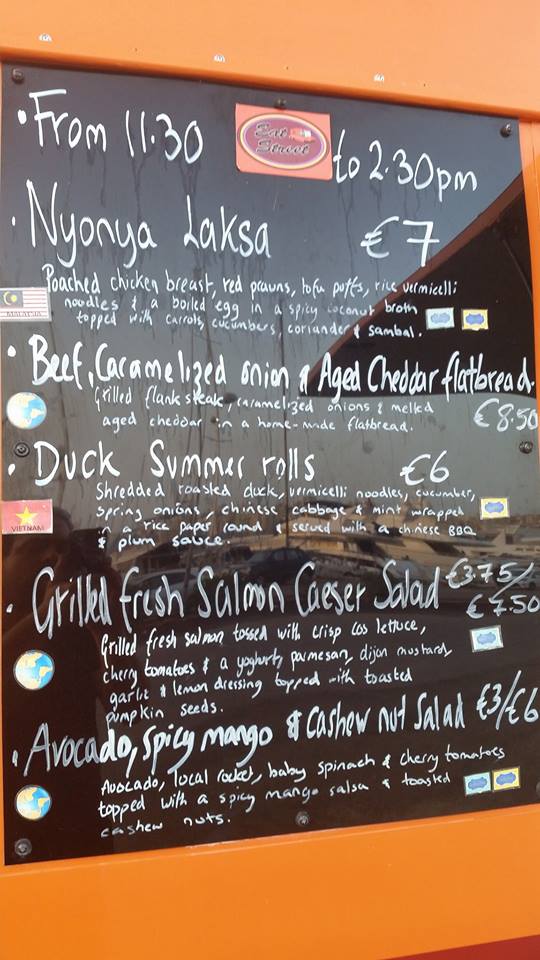 • From 11.30 Eat Street to 2.30pm
• Nyonya Laksa €7
Poached chicken breast, red prawns, tofu puffs, rice vermicelli
noodles & a boiled egg in a spicy coconut broth
topped with carrots, cucumbers, coriander & sambal.
MALAYSIA
• Beef, Caramelized onion & Aged Cheddar flatbread.
Grilled flank steak, caramelized onions & melted
aged cheddar in a home-made flatbread. €8.50
• Duck Summer rolls €6
Shredded roasted duck, vermicelli noodles, cucumber,
spring onions, chinese cabbage & mint wrapped
in a rice paper round & served with a chinese BBQ
& plum sauce.
VIETNAM
• Grilled fresh Salmon Caeser Salad €3.75/
€7.50
Grilled fresh salmon tossed with crisp cos lettuce,
cherry tomatoes & a yoghurt, parmesan, dijon mustard,
garlic & lemon dressing topped with toasted
pumpkin seeds.
• Avocado, spicy mango & Cashew nut Salad €3/€6
Avocado, local rocket, baby spinach & cherry tomatoes
topped with a spicy mango salsa & toasted
cashew nuts.